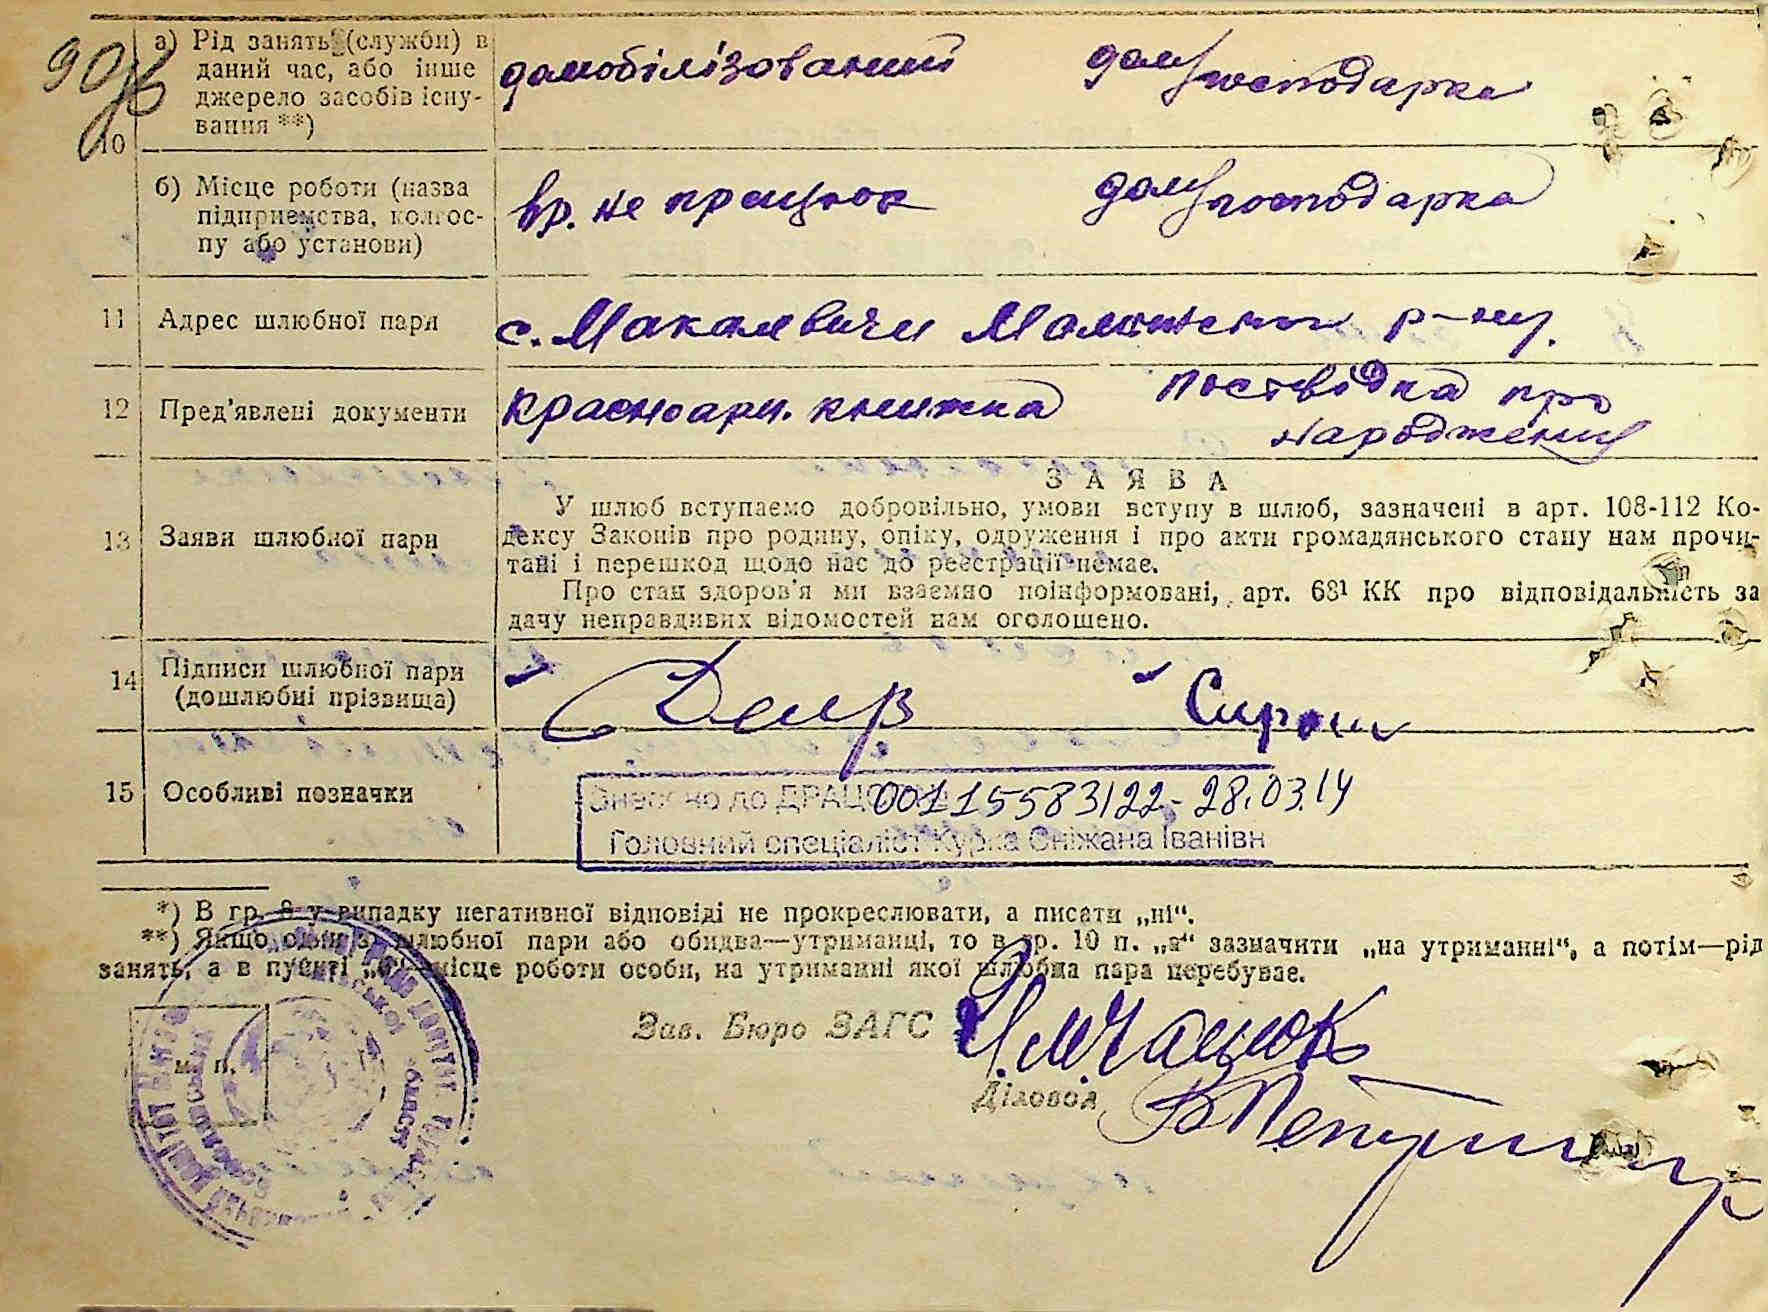 90
а) Рід занять (служби) в
даний час, або інше
джерело засобів існу-
вання **)
10
домобілізований дом господарка
б) Місце роботи (назва
підприємства, колгос-
пу або установи)
вр. не працює дом господарка
11 Адрес шлюбної пари
с. р-ну.
12 Пред'явлені документи
красноарм. книжка посвідка про
народження
13 Заяви шлюбної пари
ЗАЯВА
У шлюб вступаємо добровільно, умови вступу в шлюб, зазначені в арт. 108-112 Ко-
дексу Законів про родину, опіку, одруження і про акти громадянського стану нам прочи-
тані і перешкод щодо нас до реєстрації немає.
Про стан здоров'я ми взаємно поінформовані, арт. 68¹ КК про відповідальність за
дачу неправдивих відомостей нам оголошено.
14 Підписи шлюбної пари
(дошлюбні прізвища)
15 Особливі позначки
Знесено до ДРАЦС 00115583122-28.03.14
Головний спеціаліст Курка Сніжана Іванівн
*) В гр. 8 у випадку негативної відповіді не прокреслювати, а писати „ні“.
**) Якщо один з шлюбної пари або обидва—утриманці, то в гр. 10 п. „а“ зазначити „на утриманні“, а потім—рід
занять, а в пункті „б“ місце роботи особи, на утриманні якої шлюбна пара перебуває.
м. п.
Зав. Бюро ЗАГС
Діловод